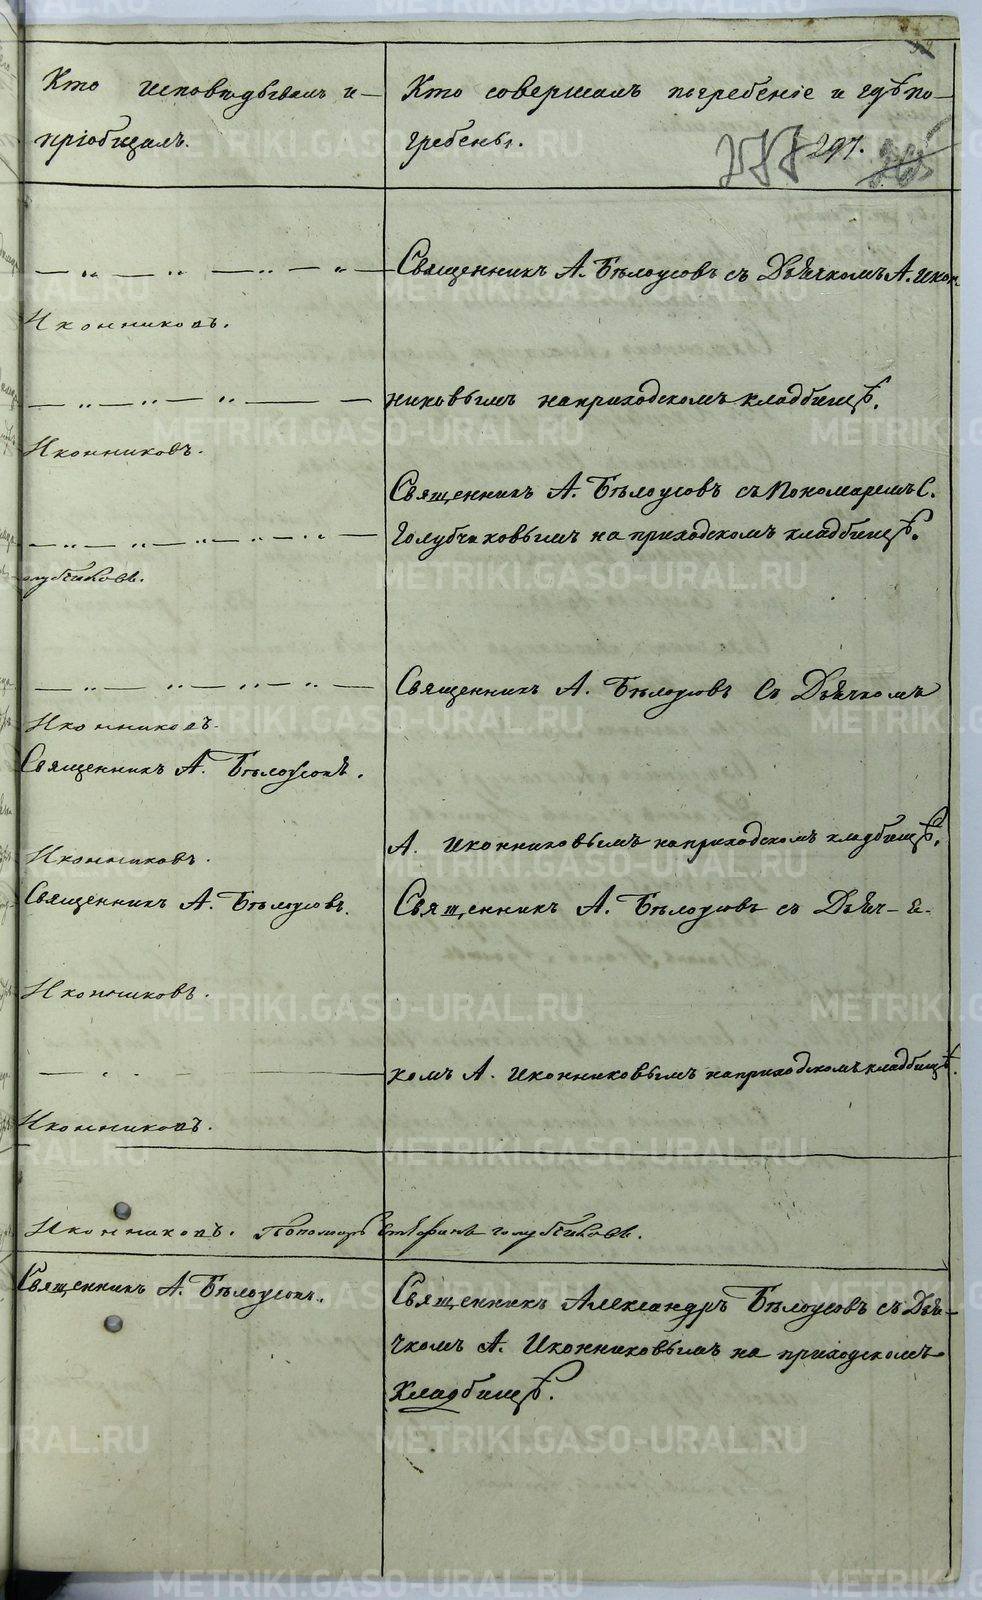 Кто исповѣдывалъ и
пріобщалъ.
Кто совершалъ погребеніе и гдѣ по-
гребены.
297.
Священникъ А. Бѣлоусовъ съ Дьячкомъ А. Икон
Иконниковъ.
никовымъ на приходскомъ кладбищѣ.
Иконниковъ.
Священникъ А. Бѣлоусовъ съ Пономаремъ С.
Голубчиковымъ на приходскомъ кладбищѣ.
олубчиковъ.
Священникъ А. Бѣлоусовъ съ Дьячкомъ
Иконниковъ.
Священникъ А. Бѣлоусовъ.
А. Иконниковымъ на приходскомъ кладбищѣ.
Иконниковъ.
Священникъ А. Бѣлоусовъ.
Священникъ А. Бѣлоусовъ съ Дьяч-
Иконниковъ.
комъ А. Иконниковымъ на приходскомъ кладбищѣ.
Иконниковъ.
Иконниковъ. Пономарь Голубчиковъ.
Священникъ А. Бѣлоусовъ.
Священникъ Александръ Бѣлоусовъ съ Дья-
чкомъ А. Иконниковымъ на приходскомъ
кладбищѣ.
METRIKI.GASO-URAL.RU